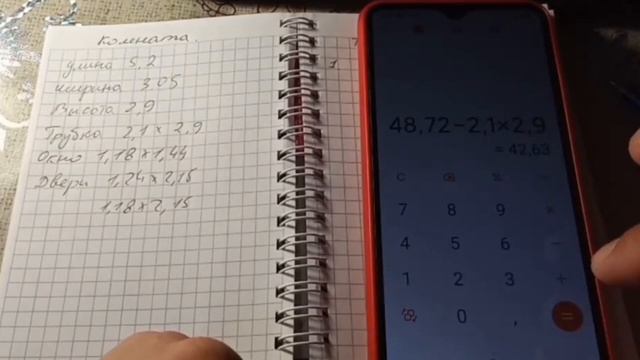 Комната.
длина 5,2
ширина 3,05
Высота 2,9
Трубка 2,1 × 2,9
Окно 1,18 × 1,44
Двери 1,24 × 2,15
1,18 × 2,15
1
48,72−2,1×2,9
= 42,63
C %
7 8 9 ×
4 5 6 −
1 2 3 +
0 , =